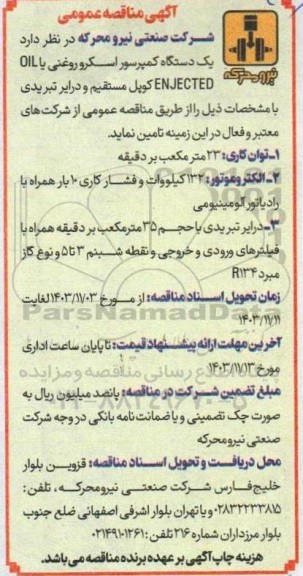 آگهی مناقصه عمومی
شرکت صنعتی نیرو محرکه در نظر دارد
یک دستگاه کمپرسور اسکرو روغنی یا OIL
ENJECTED کوپل مستقیم و درایر تبریدی
با مشخصات ذیل را از طریق مناقصه عمومی از شرکت های
معتبر و فعال در این زمینه تامین نماید.
نیرو محرکه
۱ـ توان کاری: ۲۳ متر مکعب بر دقیقه
۲ـ الکتروموتور: ۱۳۲ کیلووات و فشار کاری ۱۰ بار همراه با
رادیاتور آلومینیومی
۳ـ درایر تبریدی با حجم ۳۵ مترمکعب بر دقیقه همراه با
فیلترهای ورودی و خروجی و نقطه شبنم ۳ تا ۵ و نوع گاز
مبرد R۱۳۴
زمان تحویل اسناد مناقصه: از مورخ ۱۴۰۳/۱۱/۰۳ لغایت
۱۴۰۳/۱۱/۱۱
آخرین مهلت ارائه پیشنهاد قیمت: تا پایان ساعت اداری
مورخ ۱۴۰۳/۱۱/۱۳
مبلغ تضمین شرکت در مناقصه: پانصد میلیون ریال به
صورت چک تضمینی و یا ضمانت نامه بانکی در وجه شرکت
صنعتی نیرومحرکه
محل دریافت و تحویل اسناد مناقصه: قزوین بلوار
خلیج فارس شرکت صنعتی نیرومحرکه، تلفن:
۰۲۸۳۲۲۲۳۳۸۱۵ و یا تهران بلوار اشرفی اصفهانی ضلع جنوب
بلوار مرزداران شماره ۲۱۶ تلفن: ۰۲۱۴۹۱۰۱۲۶۱
هزینه چاپ آگهی بر عهده برنده مناقصه می باشد.
ParsNamadData